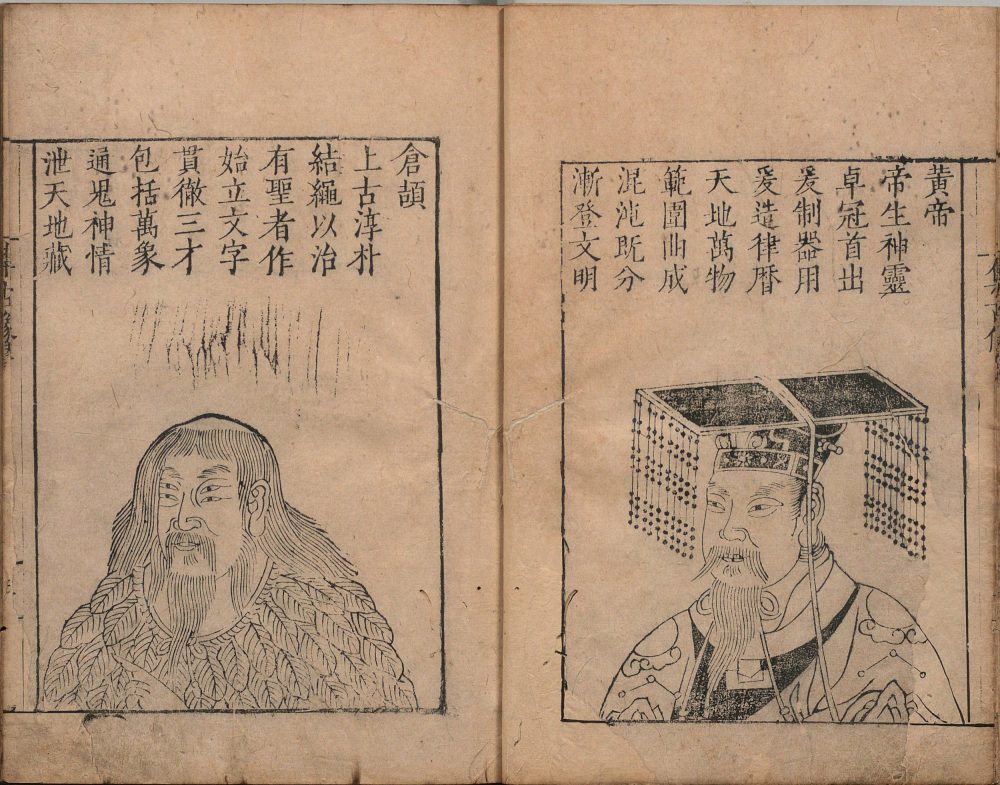 黃帝
帝生神靈
卓冠首出
爰制器用
爰造律曆
天地萬物
範圍曲成
混沌既分
漸登文明
倉頡
上古淳朴
結繩以治
有聖者作
始立文字
貫徹三才
包括萬象
通鬼神情
泄天地藏